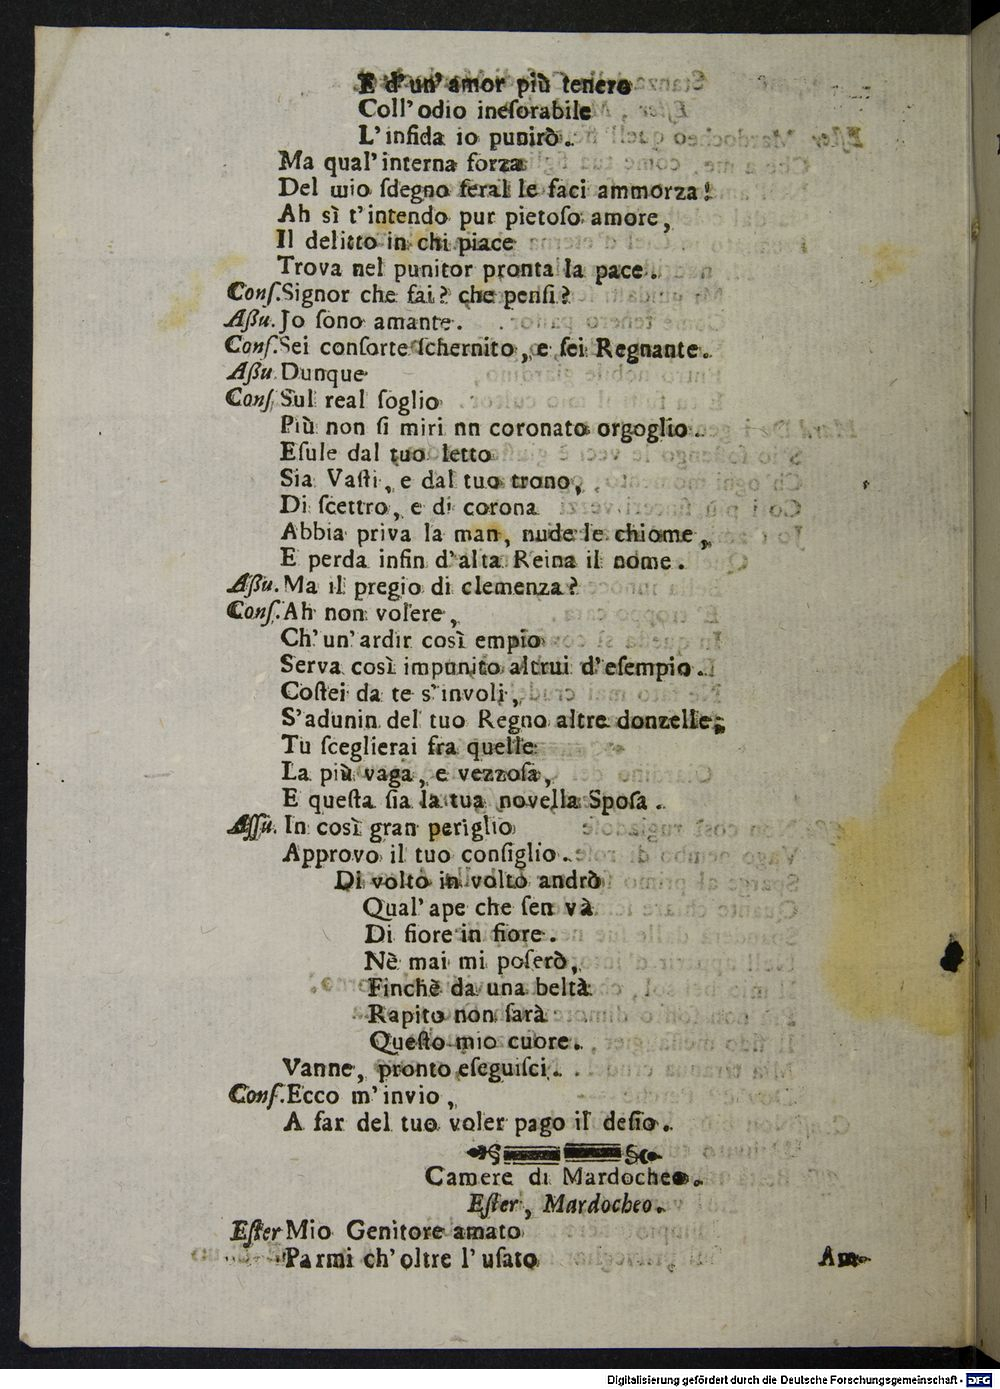 E d'un' amor più tenero
Coll' odio ineſorabile
L' infida io punirò.
Ma qual' interna forza
Del mio ſdegno feral le faci ammorza!
Ah sì t'intendo pur pietoſo amore,
Il delitto in chi piace
Trova nel punitor pronta la pace.
Conſ. Signor che fai? che penſi?
Aßu. Jo ſono amante.
Conſ. Sei conſorte ſchernito, e ſei Regnante.
Aßu. Dunque
Conſ. Sul real ſoglio
Più non ſi miri nn coronato orgoglio.
Eſule dal tuo letto
Sia Vaſti, e dal tuo trono,
Di ſcettro, e di corona
Abbia priva la man, nude le chiome,
E perda infin d'alta Reina il nome.
Aßu. Ma il pregio di clemenza?
Conſ. Ah non volere,
Ch' un' ardir così empio
Serva così impunito altrui d'eſempio.
Coſtei da te s'involi,
S'adunin del tuo Regno altre donzelle;
Tu ſceglierai fra quelle
La più vaga, e vezzoſa,
E queſta ſia la tua novella Spoſa.
Aſſu. In così gran periglio
Approvo il tuo conſiglio.
Di volto in volto andrò
Qual' ape che ſen và
Di fiore in fiore.
Nè mai mi poſerò,
Finchè da una beltà
Rapito non ſarà
Queſto mio cuore.
Vanne, pronto eſeguiſci.
Conſ. Ecco m' invio,
A far del tuo voler pago il deſio.
Camere di Mardocheo.
Eſter, Mardocheo.
Eſter Mio Genitore amato
Parmi ch' oltre l' uſato
Am-
Digitalisierung gefördert durch die Deutsche Forschungsgemeinschaft - DFG